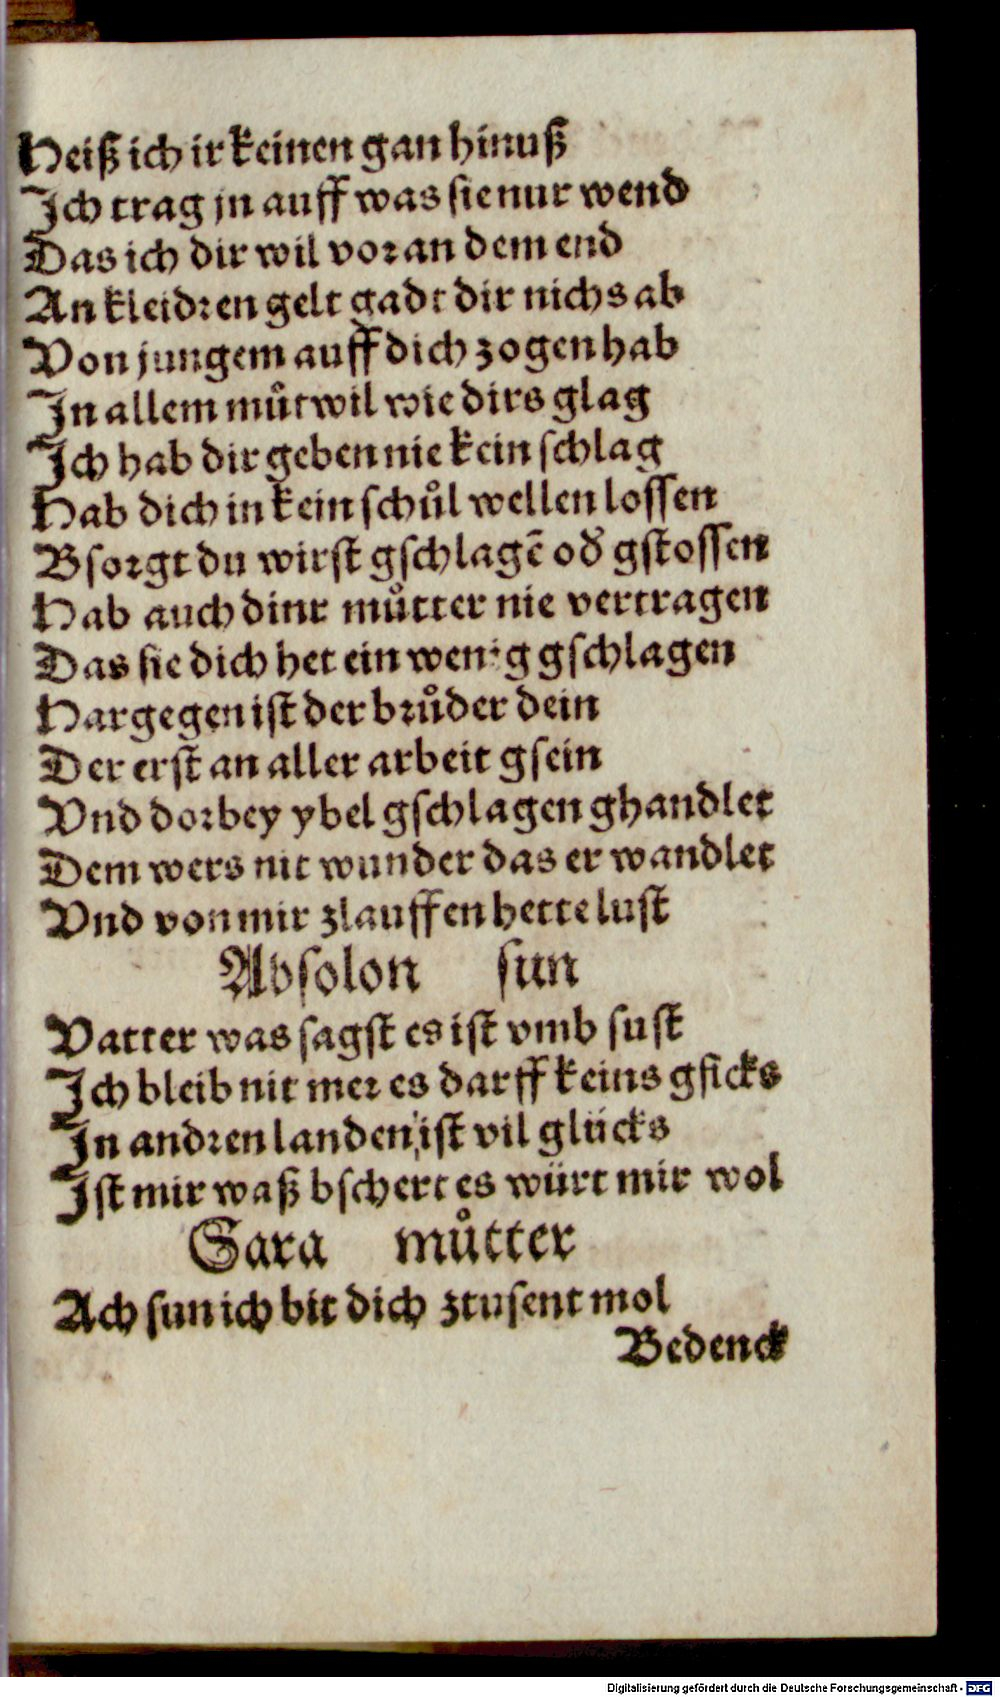 Heiß ich ir keinen gan hinuß
Ich trag jn auff was sie nur wend
Das ich dir wil vor an dem end
An kleidren gelt gadt dir nichs ab
Von jungem auff dich zogen hab
In allem můtwil wie dirs glag
Ich hab dir geben nie kein schlag
Hab dich in kein schůl wellen lossen
Bsorgt du wirst gschlagē od̕ gstossen
Hab auch dinr můtter nie vertragen
Das sie dich het ein wenig gschlagen
Hargegen ist der brůder dein
Der erst an aller arbeit gsein
Vnd dorbey ybel gschlagen ghandlet
Dem wers nit wunder das er wandlet
Vnd von mir zlauffen hette lust
Absolon sun
Vatter was sagst es ist vmb sust
Ich bleib nit mer es darff keins gficks
In andren landen ist vil glücks
Ist mir waß bschert es würt mir wol
Sara můtter
Ach sun ich bit dich ztusent mol
Bedenck
Digitalisierung gefördert durch die Deutsche Forschungsgemeinschaft - DFG